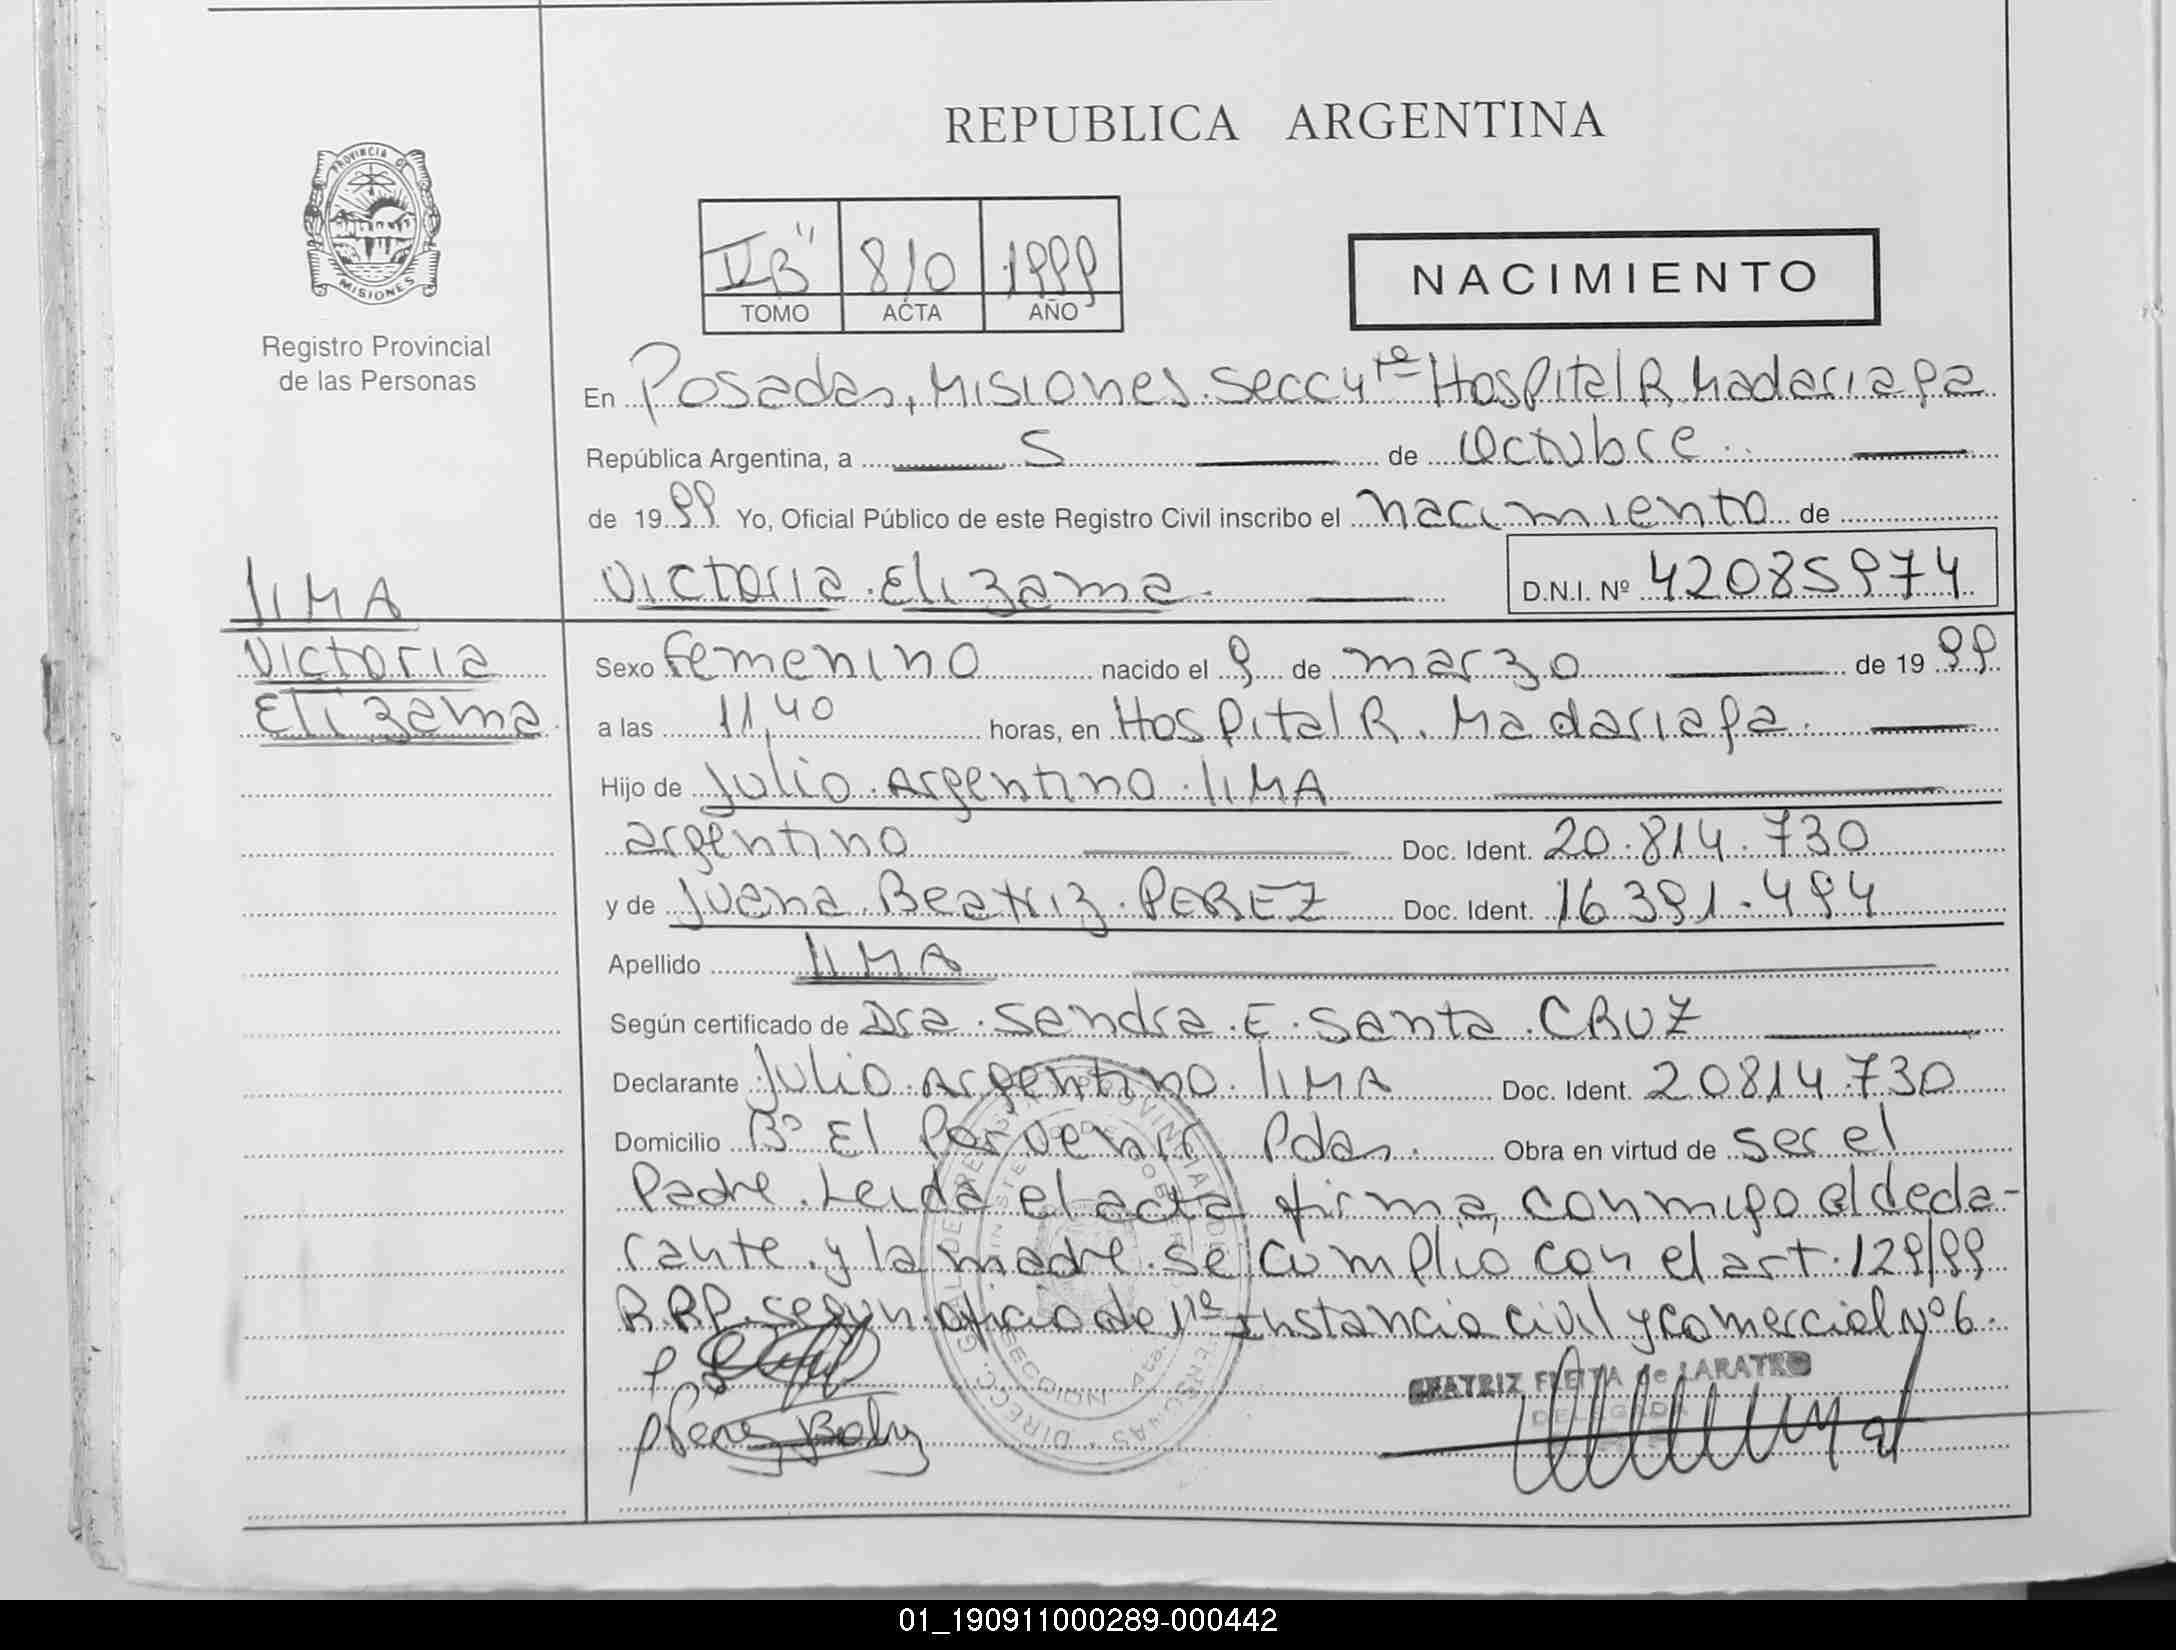 REPUBLICA ARGENTINA
PROVINCIA DE
MISIONES
Registro Provincial
de las Personas
810 1999
TOMO ACTA AÑO
NACIMIENTO
En Posadas, Misiones. Secc 4ta Hospital R. Madariaga
República Argentina, a 5 de Octubre
de 1999 Yo, Oficial Público de este Registro Civil inscribo el nacimiento de
Victoria Elizama D.N.I. Nº 42085974
LIMA
Victoria
Elizama
Sexo femenino nacido el 9 de marzo de 1999
a las 11,40 horas, en Hospital R. Madariaga.
Hijo de Julio Argentino LIMA
argentino Doc. Ident. 20.814.730
y de Juana Beatriz PEREZ Doc. Ident. 16391.494
Apellido LIMA
Según certificado de Dra. Sandra E. Santa CRUZ
Declarante Julio Argentino LIMA Doc. Ident. 20814.730
Domicilio Bº El Porvenir Pdas. Obra en virtud de ser el
Padre. Leida el acta firma conmigo el decla-
rante y la madre. se cumplió con el art. 129/99
R.P.P. segun oficio de 1ra Instancia civil y comercial Nº 6.
BEATRIZ de LARATRO
DELEGADA
01_190911000289-000442